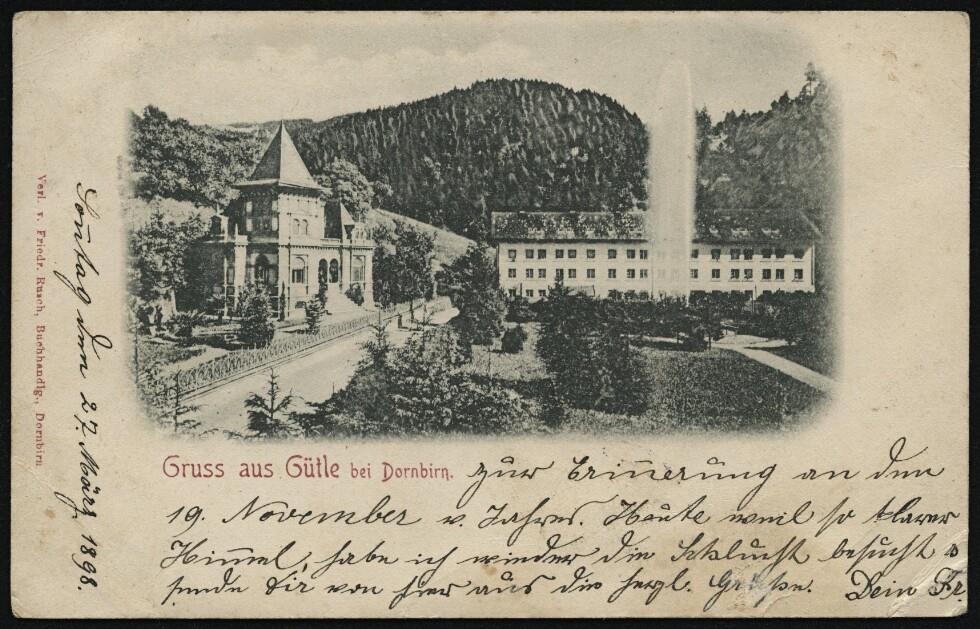 Gruss aus Gütle bei Dornbirn. zur Erinnerung an den
19. November v. Jahres. Heute weil so klarer
Himmel, habe ich wieder die Schlucht besucht &
sende Dir von hier aus die herzl. Grüsse. Dein Fr.
Sontag den 27. März 1898.
Verl. v. Friedr. Rusch, Buchhandlg., Dornbirn